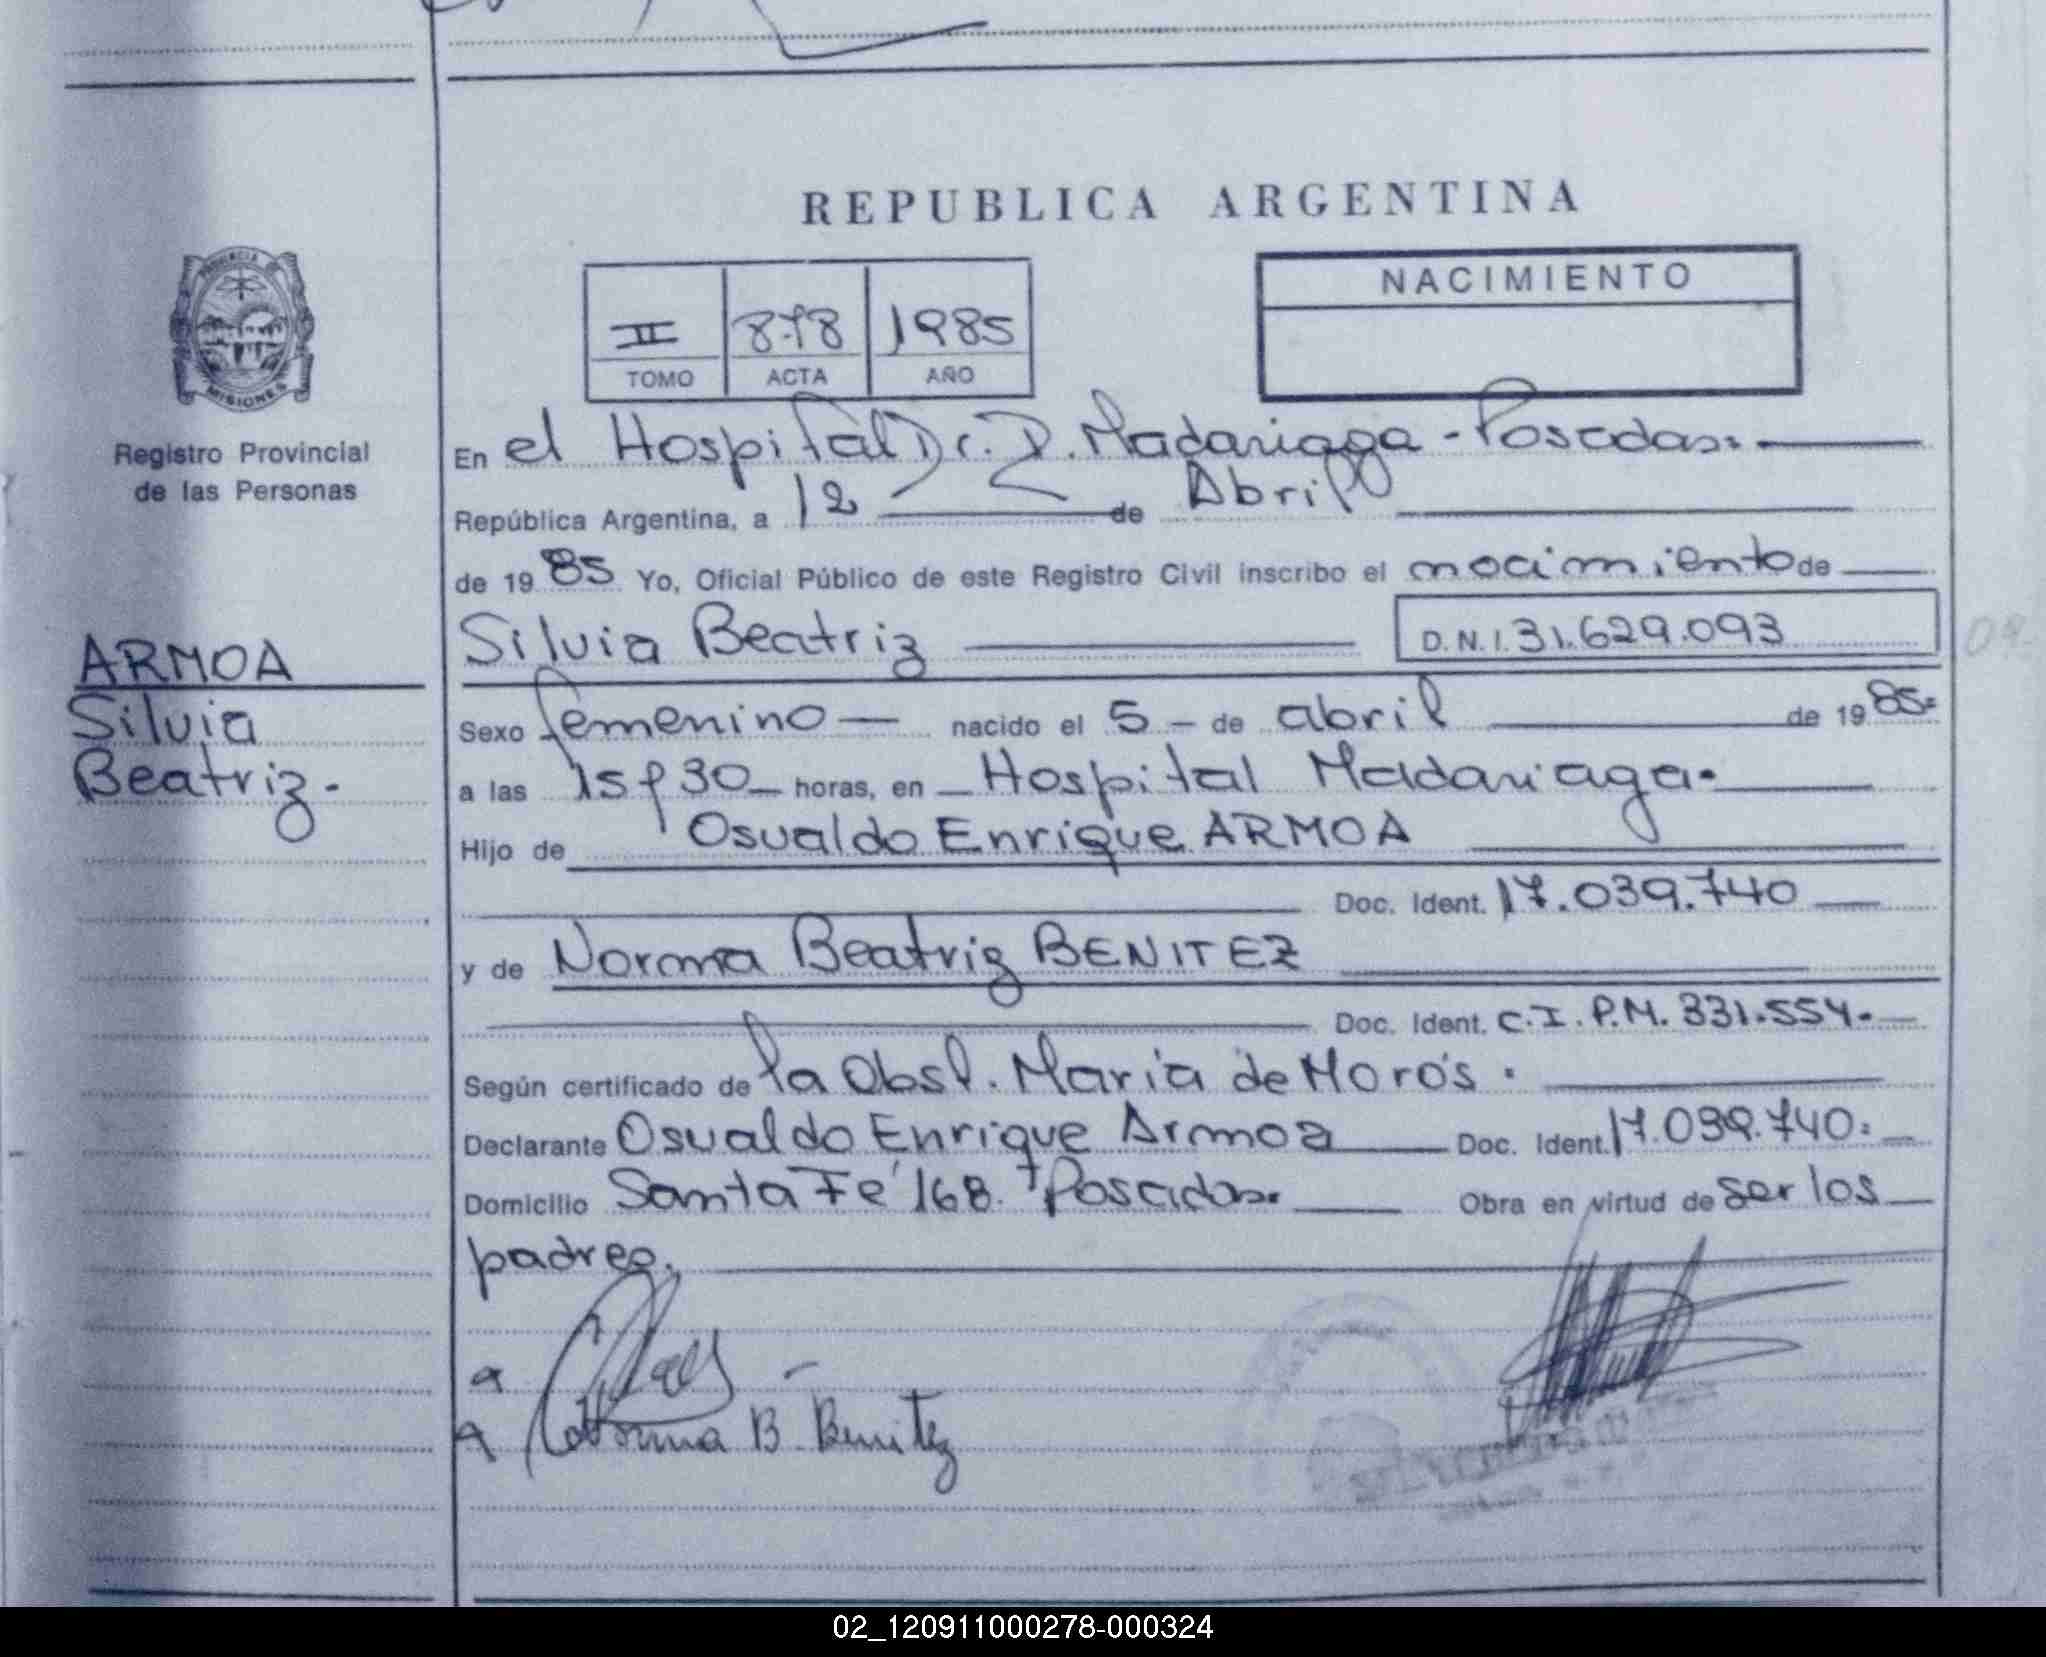 REPUBLICA ARGENTINA
PROVINCIA DE
MISIONES
Registro Provincial
de las Personas
II 878 1985
TOMO ACTA AÑO
NACIMIENTO
En el Hospital Dr. R. Madariaga - Posadas.
República Argentina, a 12 de Abril
de 1985 Yo, Oficial Público de este Registro Civil inscribo el nacimiento de
Silvia Beatriz D.N.I. 31.629.093
ARMOA
Silvia
Beatriz.-
Sexo femenino nacido el 5 - de abril de 1985.
a las 15 y 30 horas, en Hospital Madariaga.
Hijo de Osvaldo Enrique ARMOA
Doc. Ident. 17.039.740
y de Norma Beatriz BENITEZ
Doc. Ident. C.I. P.M. 331.554.
Según certificado de la Obst. María de Morós.
Declarante Osvaldo Enrique Armoa Doc. Ident. 17.039.740.
Domicilio Santa Fé 168. Posadas. Obra en virtud de ser los
padres.
Norma B. Benitez
02_120911000278-000324